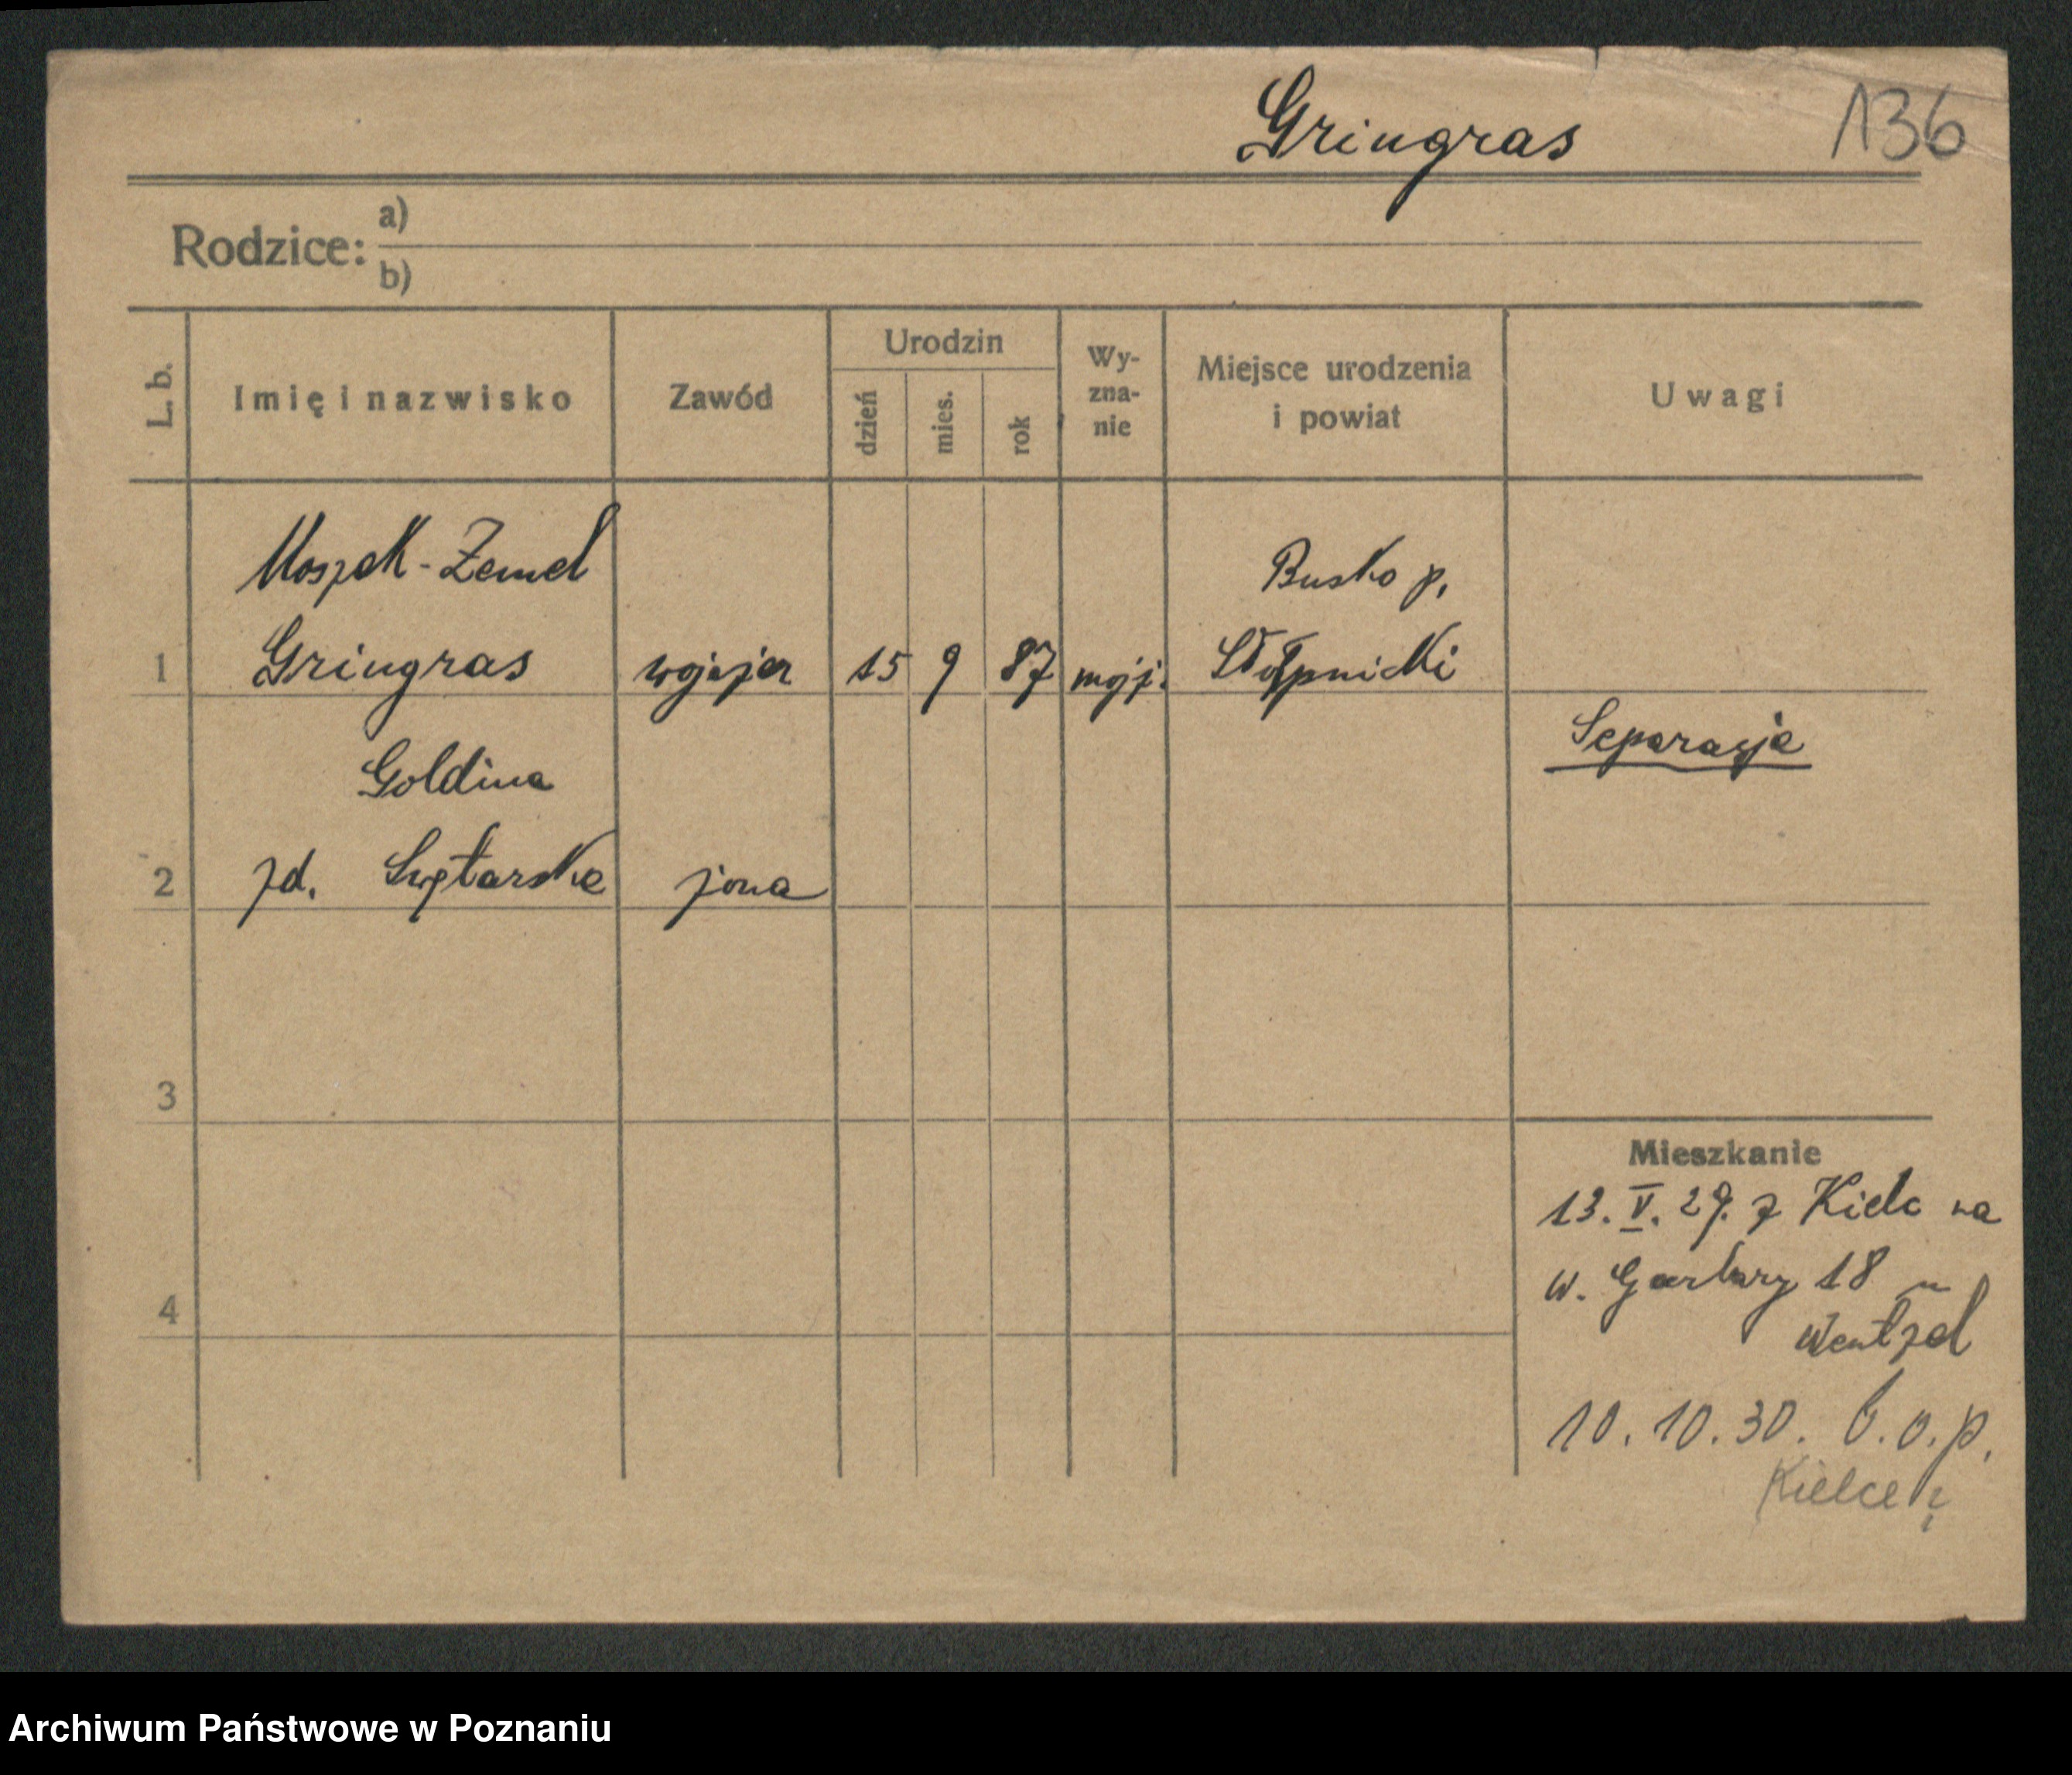 Gringras 136
Rodzice: a)
b)
L. b. Imię i nazwisko Zawód Urodzin dzień mies. rok Wy-zna-nie Miejsce urodzenia i powiat Uwagi
Moszek-Zemel Busko p.
1 Gringras wojażer 15 9 87 mojż. Stopnicki
Separacja
Goldina
2 zd. żona
3
Mieszkanie
13. V. 29. z Kielc na
4 w. Garbary 18 u
Wentzel
10. 10. 30. b. o. p.
Kielce
Archiwum Państwowe w Poznaniu